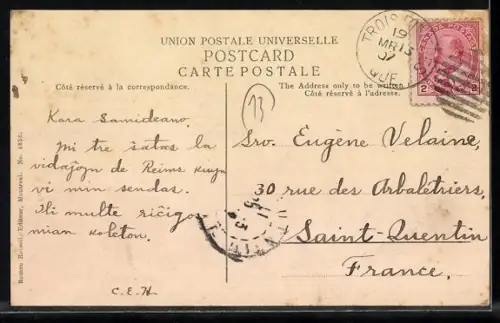 UNION POSTALE UNIVERSELLE
POSTCARD
CARTE POSTALE
Côté réservé à la correspondance.
The Address only to be written
Côté réservé à l'adresse.
TROIS
19
MR 13
07
QUE
CANADA POSTAGE
2 2
13
Kara Samideano,
Mi tre ŝatas la
vidaĵojn de Reims kiujn
vi min sendas.
Ili multe riĉigos
mian kolekton.
C.E.H.
Sro. Eugène Velaine,
30 rue des Arbalétriers,
Saint-Quentin
France.
Editeur, Montreal. No.